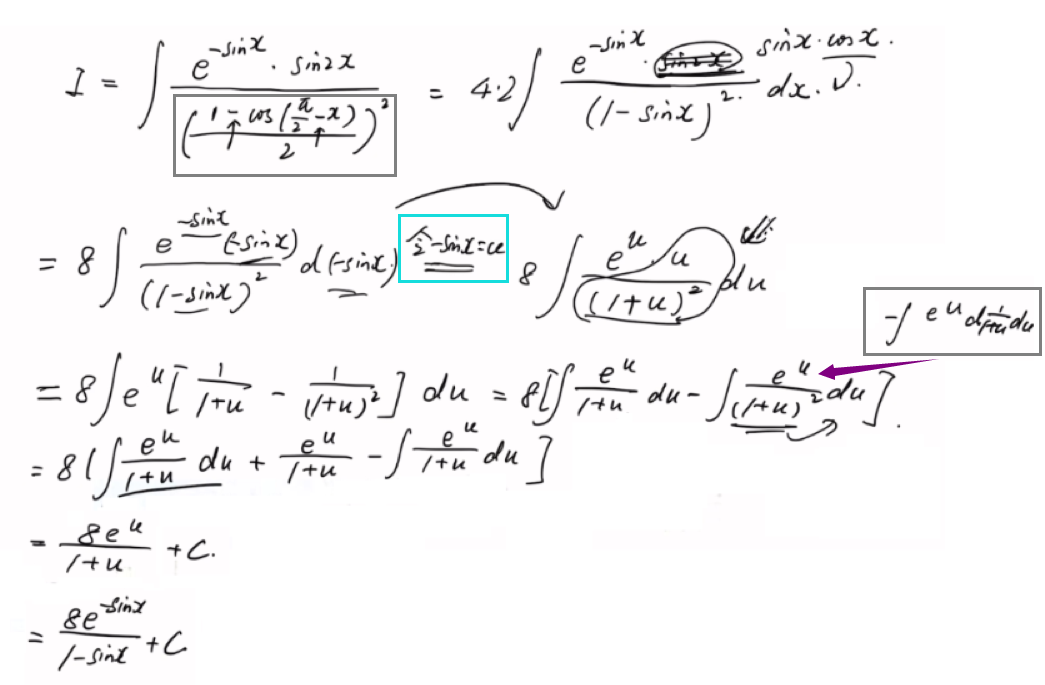 I = ∫ e^{-sinx} · sin2x / ((1 - cos(π/2 - x)) / 2)^2 = 4·2 ∫ e^{-sinx} · sinx · cosx · / (1 - sinx)^2 · dx.
= 8 ∫ e^{-sinx} (-sinx) / (1 - sinx)^2 d(-sinx) 令 -sinx = u 8 ∫ e^u · u / (1+u)^2 du
-∫ e^u d 1/(1+u) du
= 8 ∫ e^u [ 1/(1+u) - 1/(1+u)^2 ] du = 8 [ ∫ e^u/(1+u) du - ∫ e^u/(1+u)^2 du ] .
= 8 ( ∫ e^u/(1+u) du + e^u/(1+u) - ∫ e^u/(1+u) du ]
= 8e^u/(1+u) + C.
= 8e^{-sinx}/(1-sinx) + C